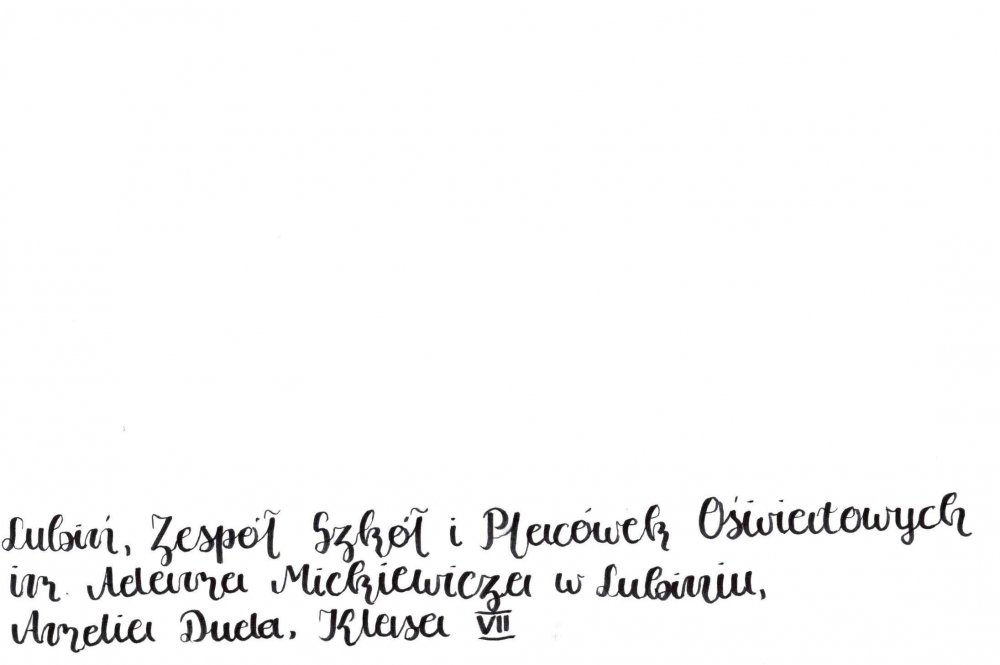 Lubiń, Zespół Szkół i Placówek Oświatowych
im. Adama Mickiewicza w Lubiniu,
Amelia Duda, Klasa VII